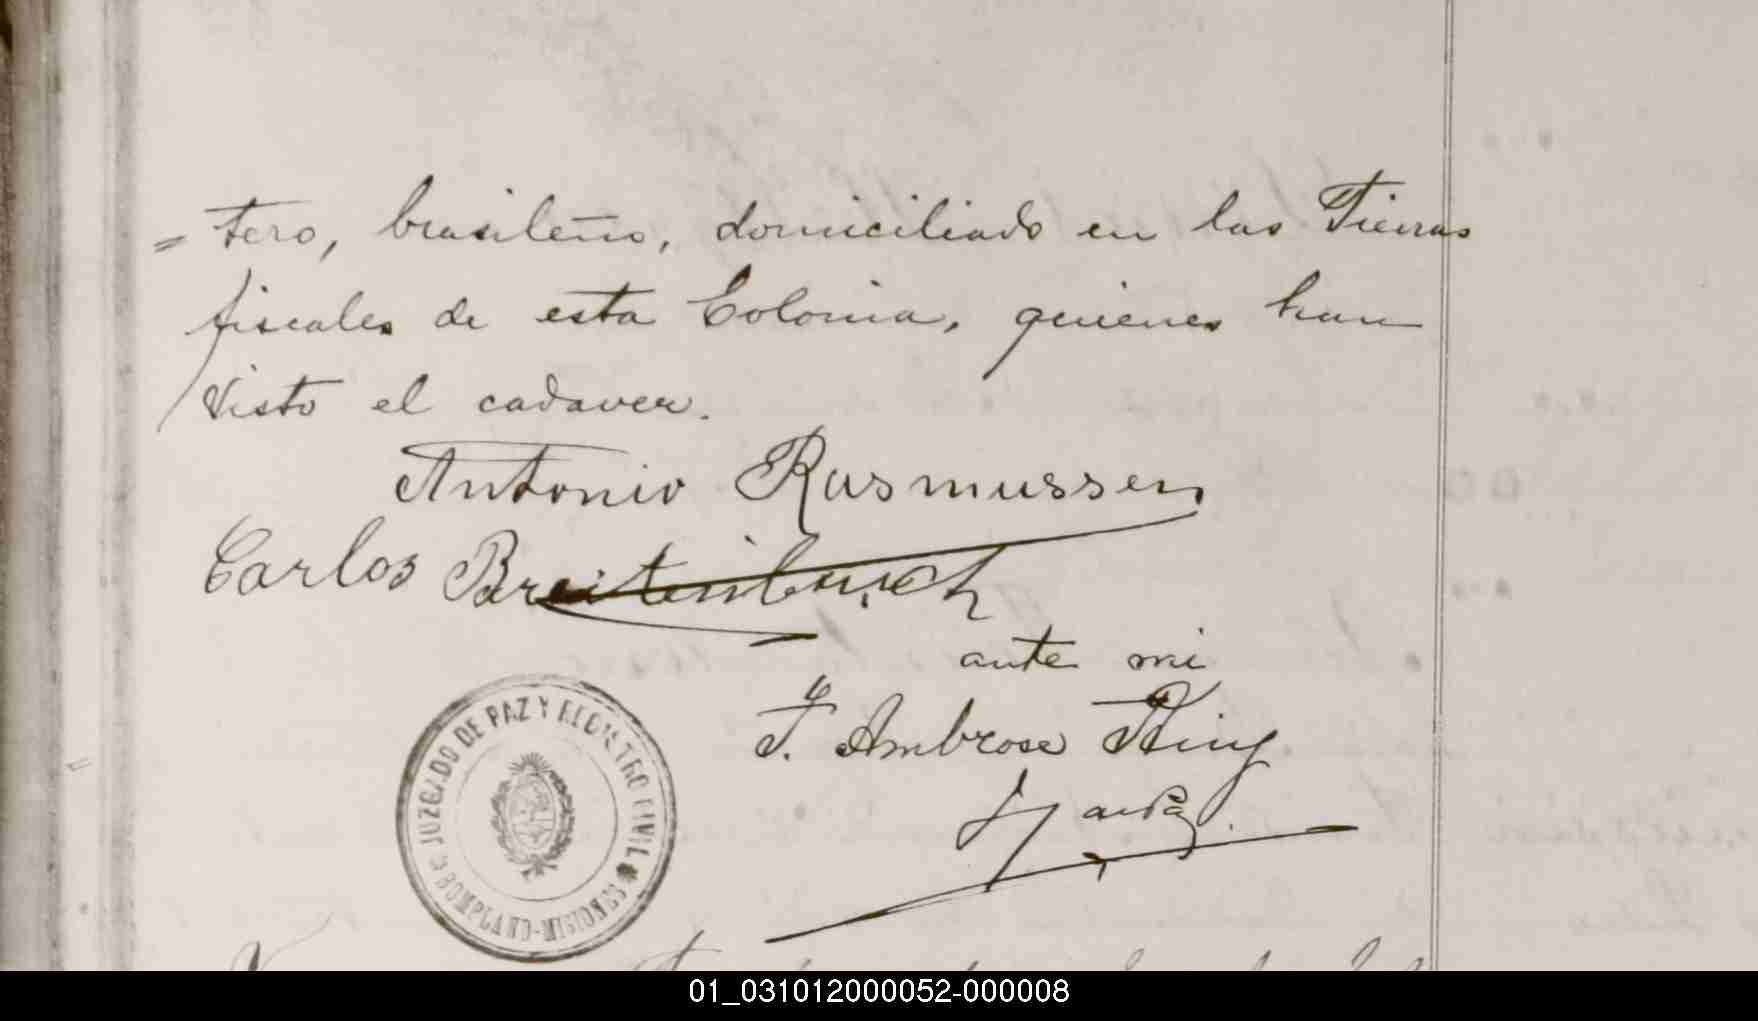 = tero, brasileño, domiciliado en las Tierras
fiscales de esta Colonia, quienes han
visto el cadaver.
Antonio Rasmussen
Carlos Breitenbruch
ante mi
F. Ambrose King
J. de Paz
JUZGADO DE PAZ Y REGISTRO CIVIL
DE BOMPLAND-MISIONES
01_031012000052-000008